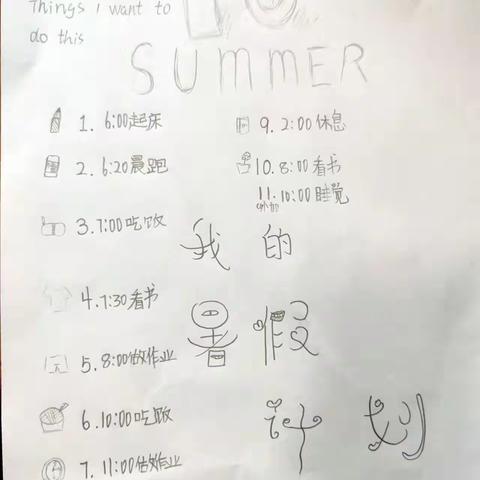 Things I want to
do this
10
SUMMER
1. 6:00起床
2. 6:20晨跑
3. 7:00吃饭
4. 7:30看书
5. 8:00做作业
6. 10:00吃饭
7. 11:00做作业
9. 2:00休息
10. 8:00看书
11. 10:00睡觉
我的
暑假
计划